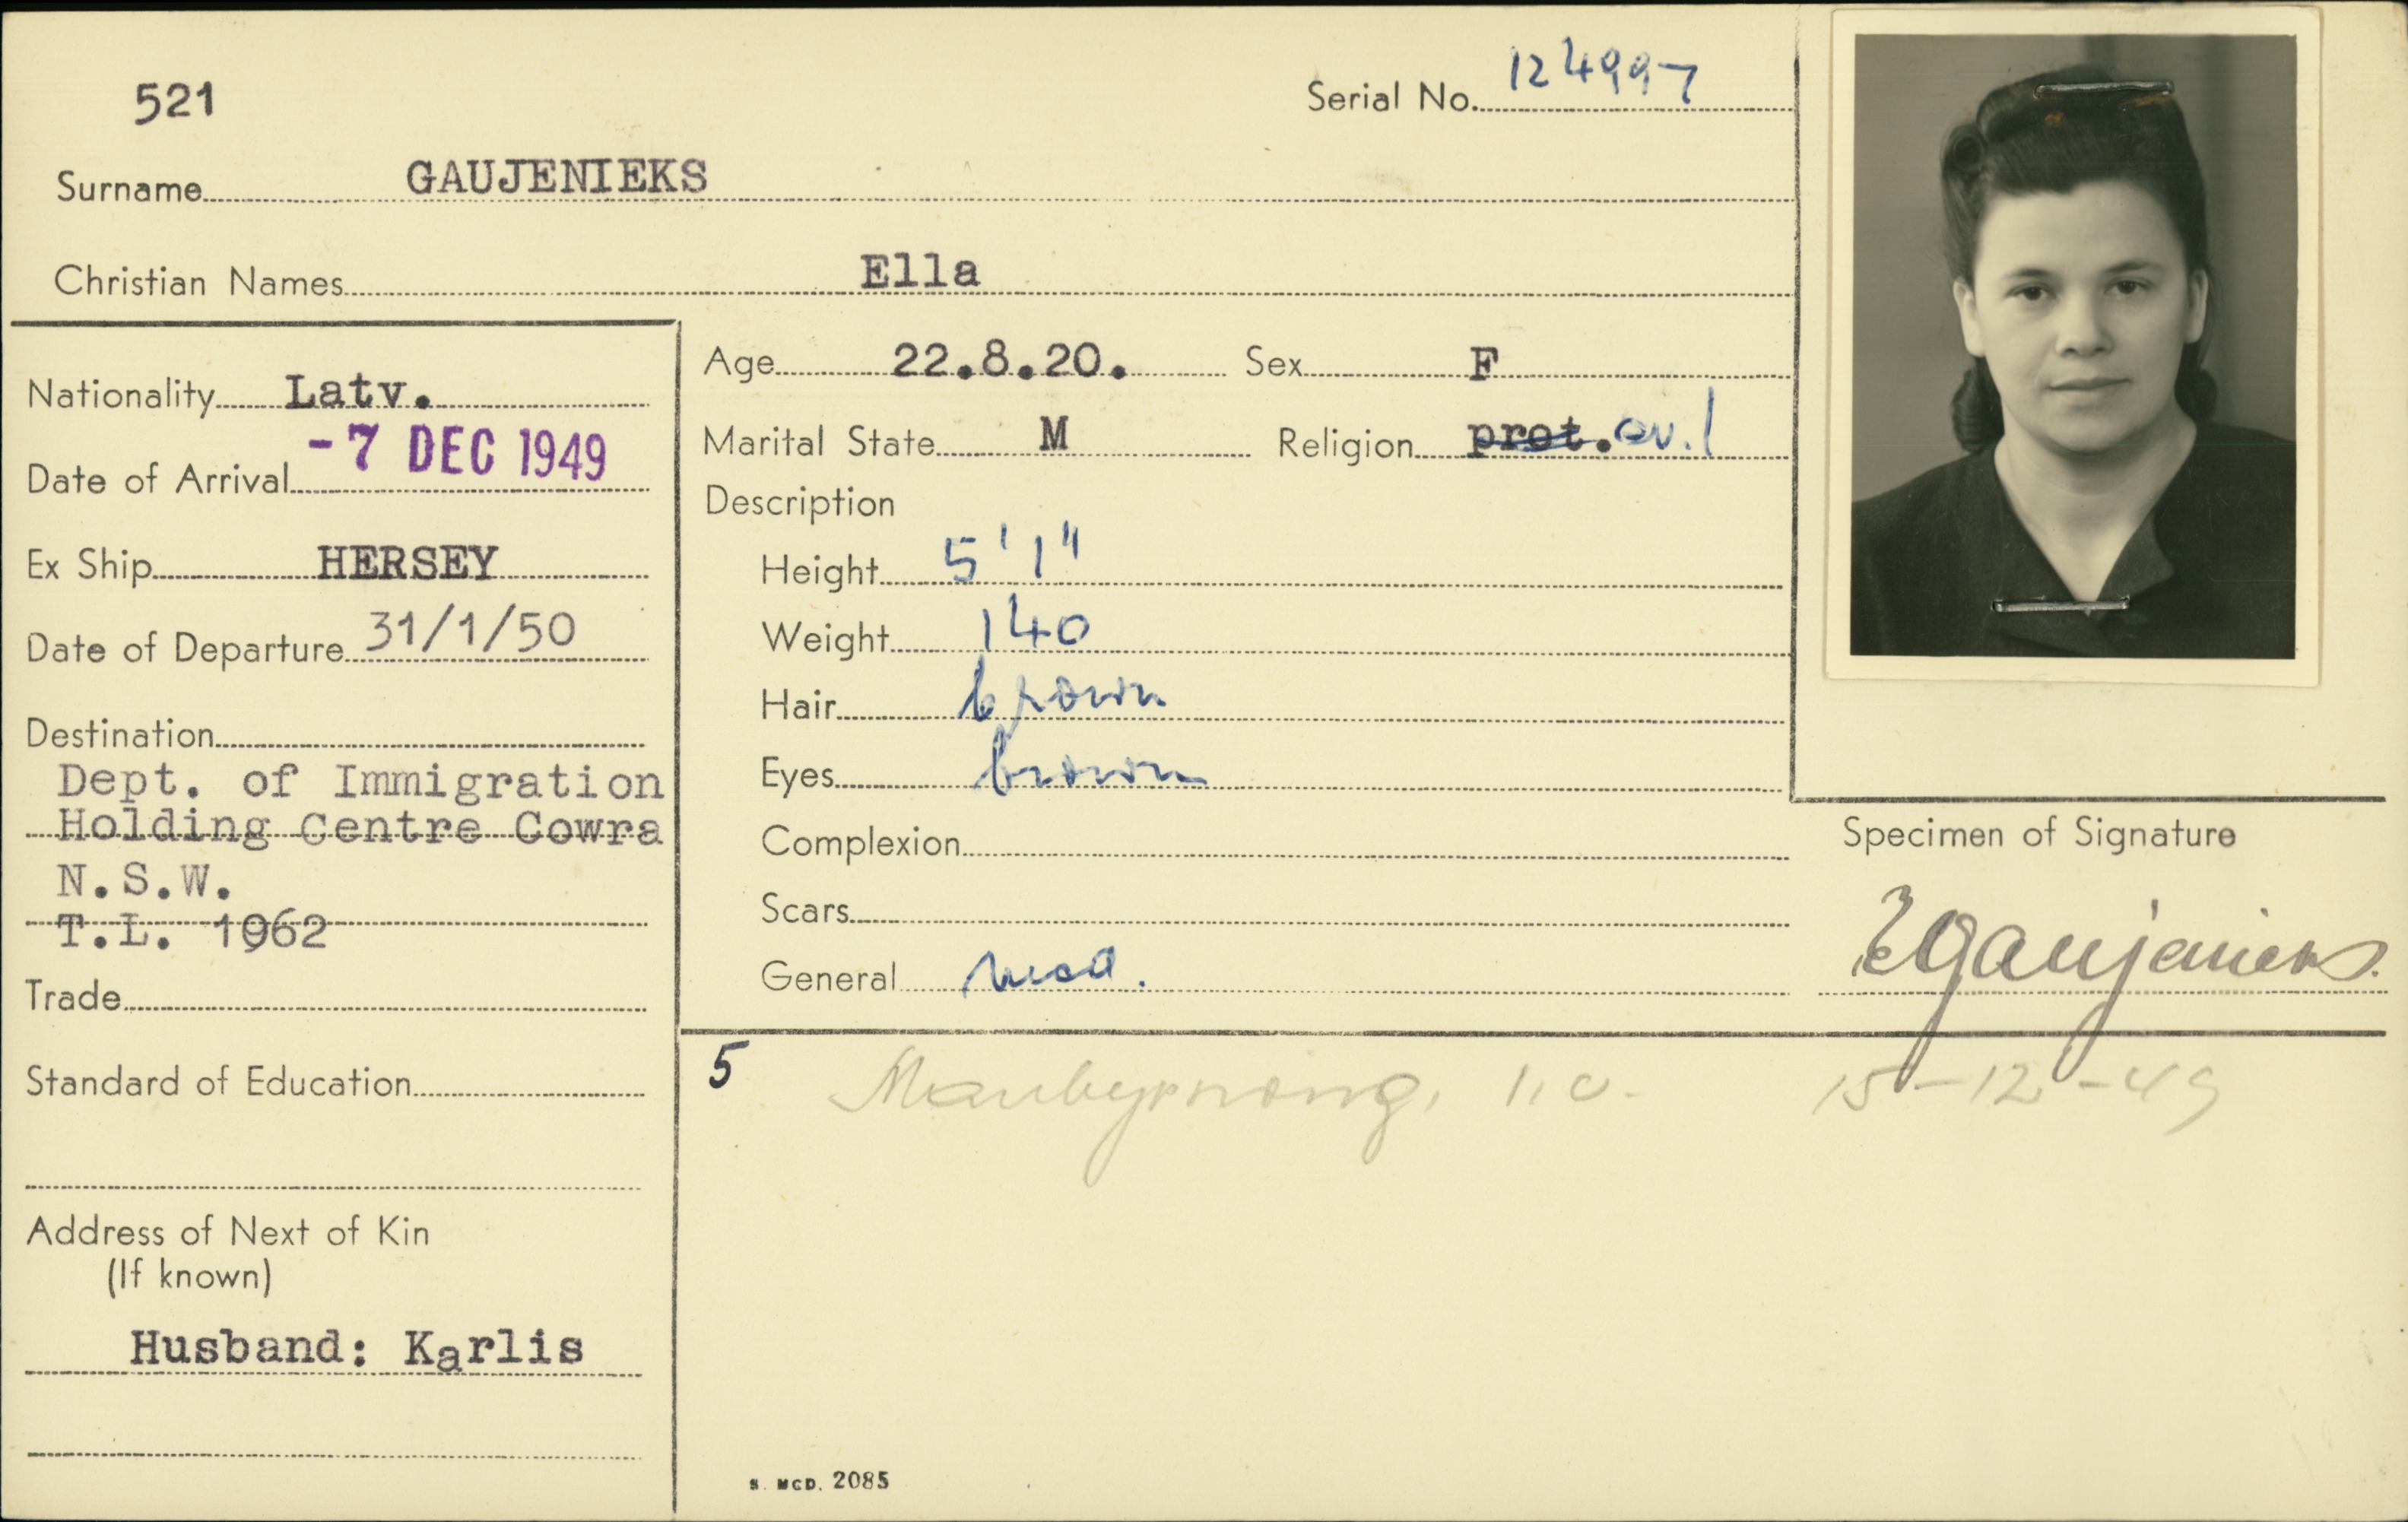 521
Serial No. 124997
Surname GAUJENIEKS
Christian Names Ella
Nationality Latv.
Date of Arrival -7 DEC 1949
Ex Ship HERSEY
Date of Departure 31/1/50
Destination
Dept. of Immigration
Holding Centre Cowra
N.S.W.
T.L. 1962
Trade
Standard of Education
Address of Next of Kin
(If known)
Husband: Karlis
Age 22.8.20. Sex F
Marital State M Religion prot. ev. l
Description
Height 5' 1"
Weight 140
Hair brown
Eyes brown
Complexion
Scars
General med.
Specimen of Signature
EGaujenieks.
5 15-12-49
S. MCD. 2085